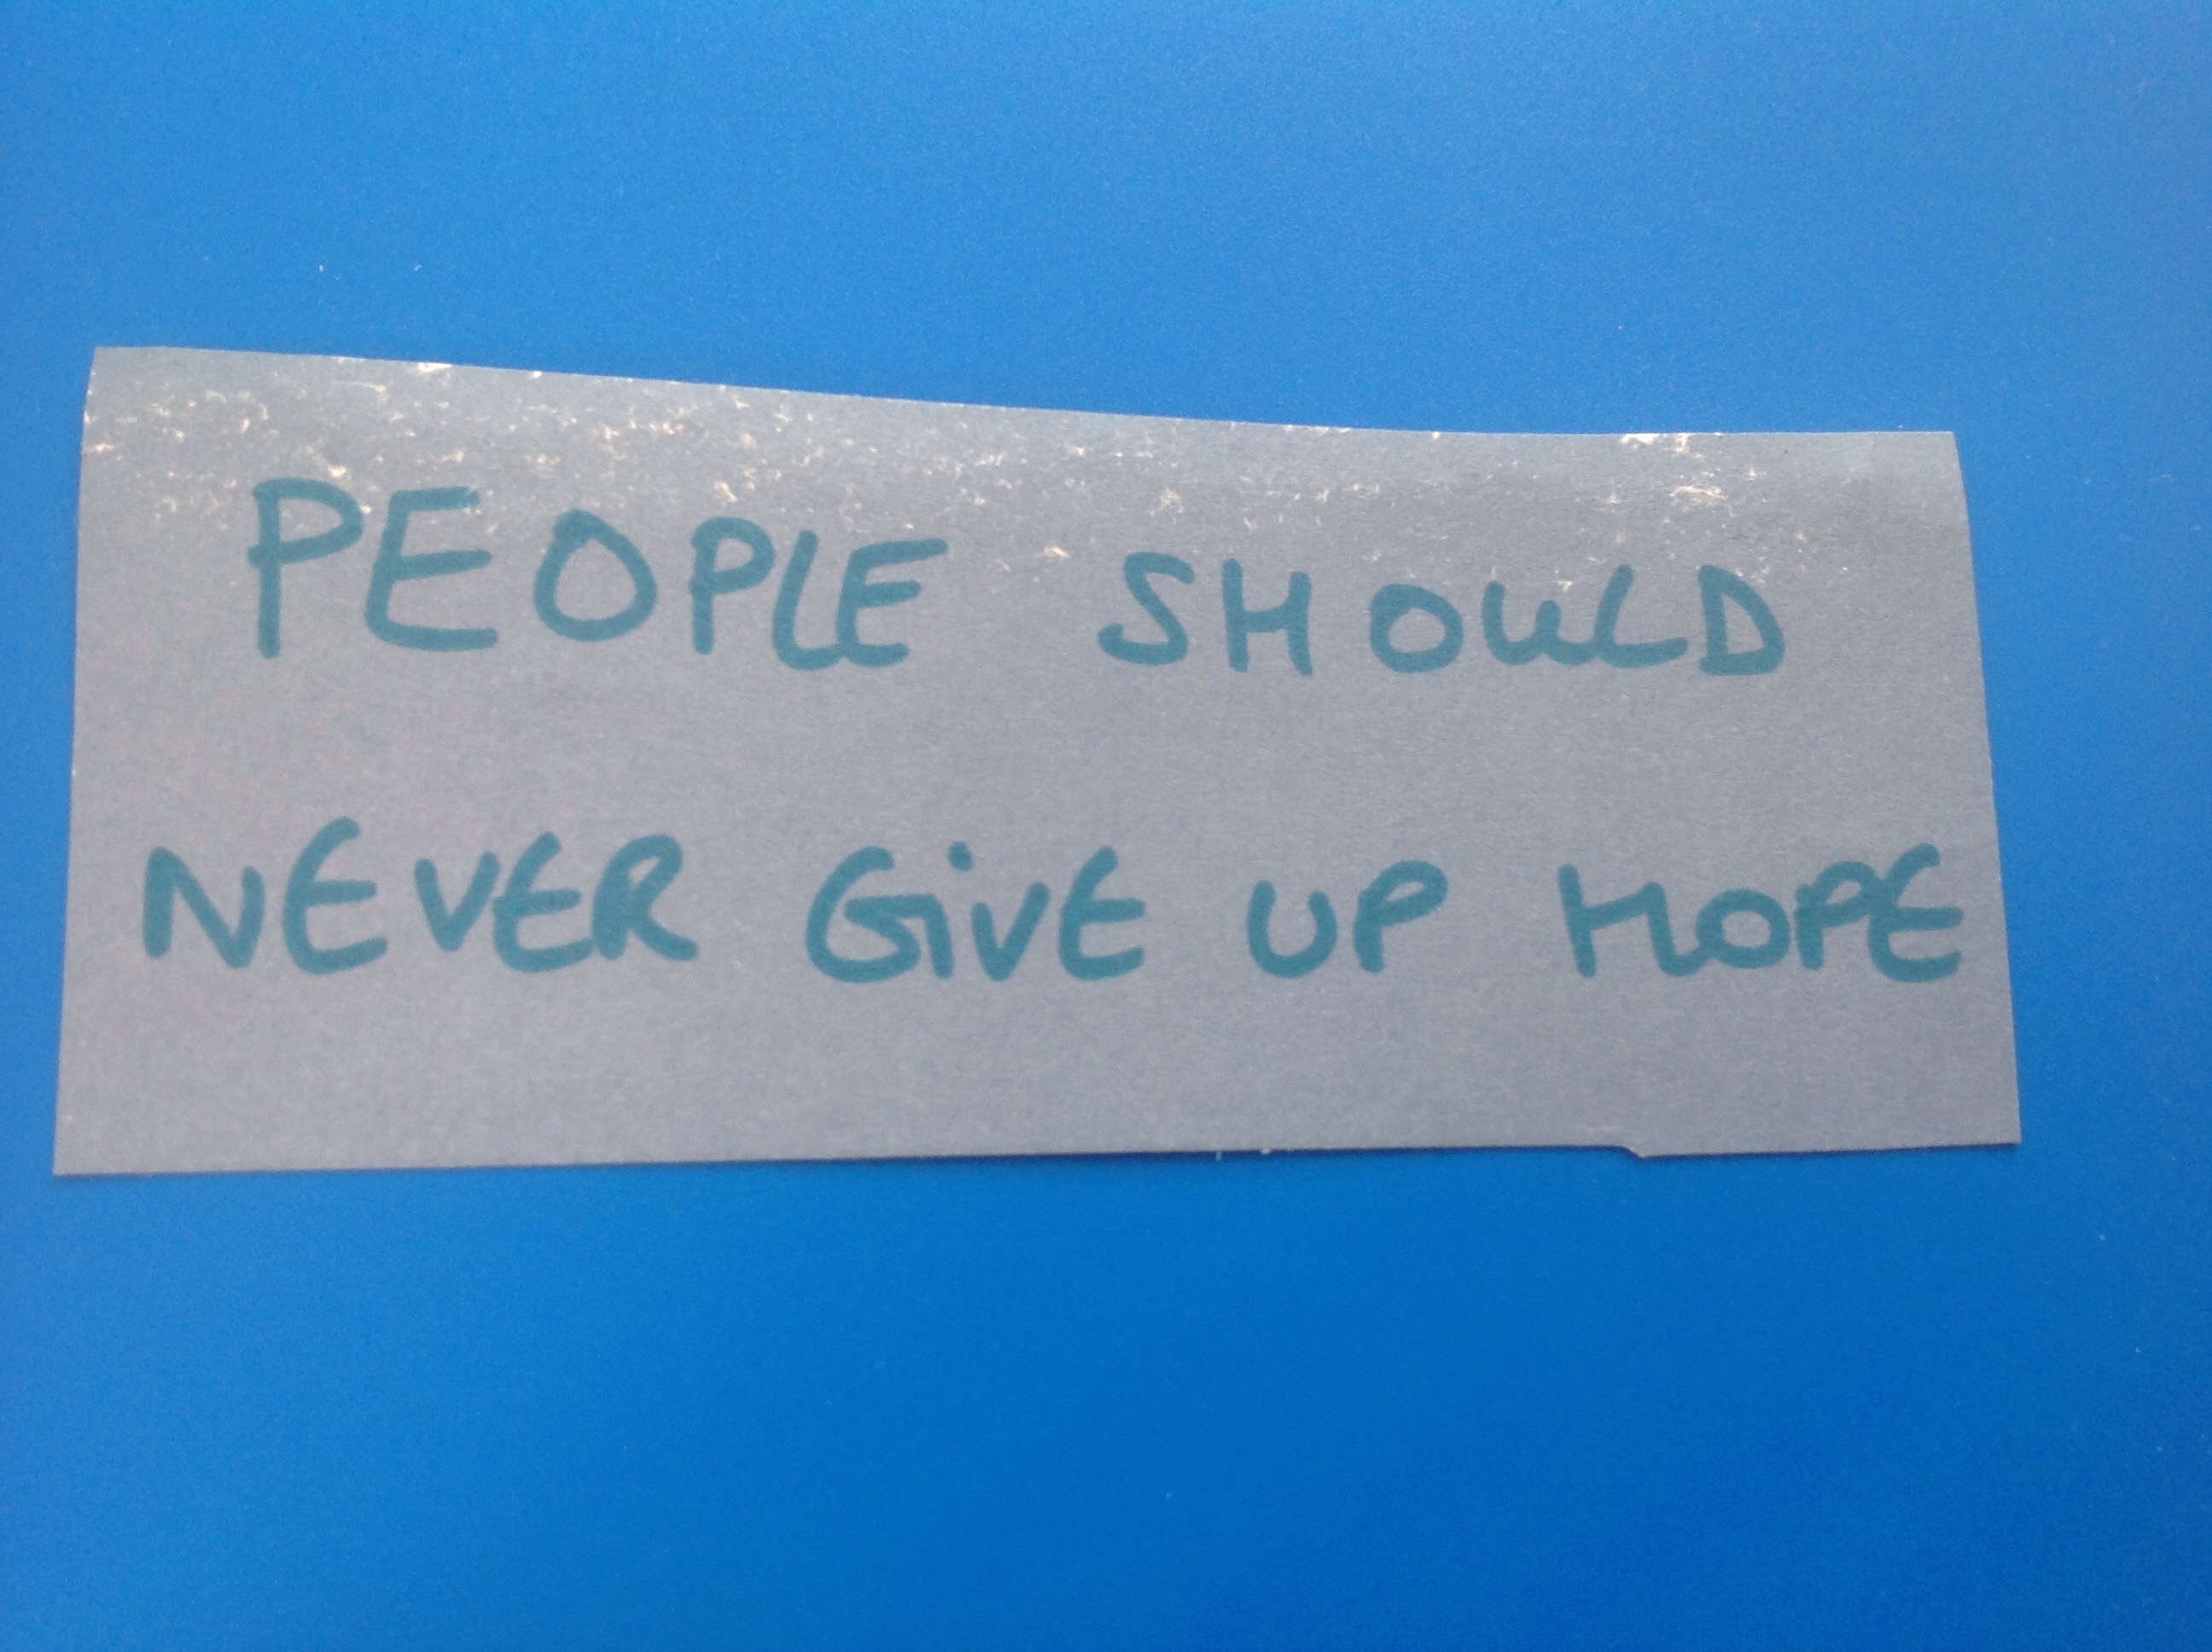 PEOPLE SHOULD
NEVER GiVE UP HOPE